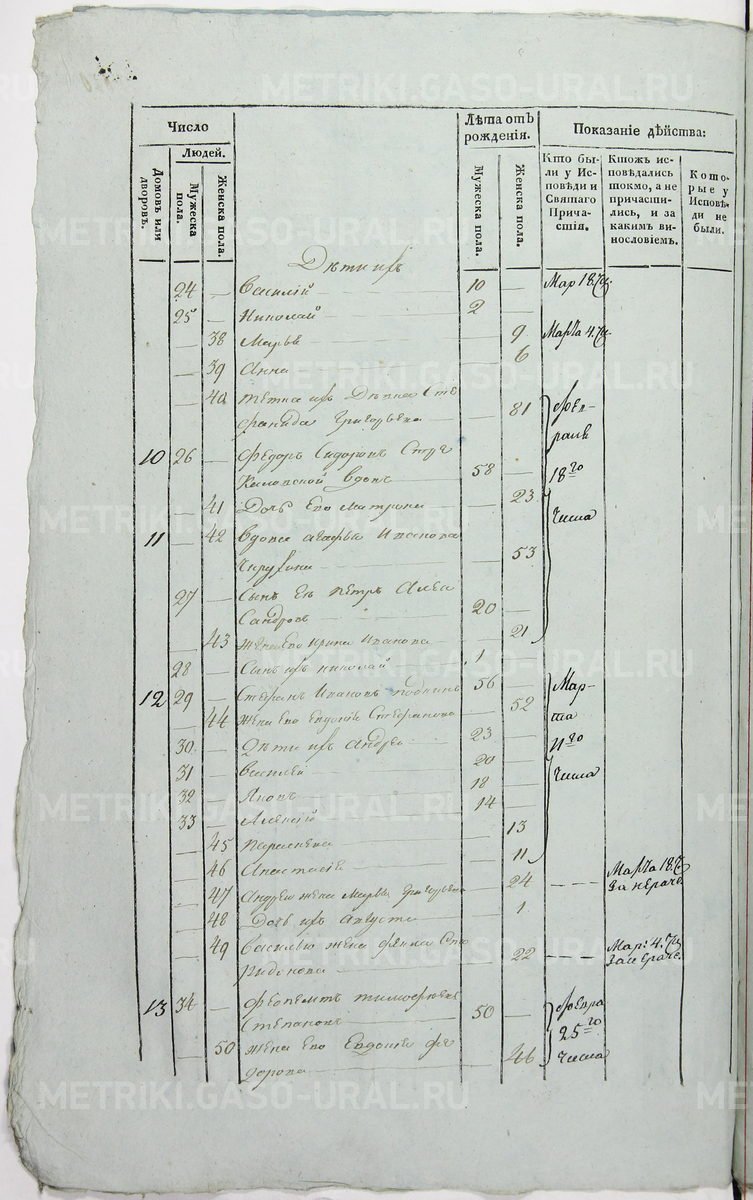 Число
Лѣта отъ рожденія.
Показаніе дѣйства:
Людей.
Домовъ или дворовъ.
Мужеска пола.
Женска пола.
Мужеска пола.
Женска пола.
Кто были у Исповѣди и Святаго Причастія.
Ктожъ исповѣдались токмо, а не причастились, и за какимъ винословіемъ.
Которые у Исповѣди не были.
Дѣти ихъ
24 — Василій 10 — Мар 18.
25 — Николай 2 —
— 38 Марья — 9 Марта 4.
— 39 Анна — 6
— 40 тетка ихъ Сте
фанида Григорьева — 81 Февраля
10 26 — Федоръ Сидоровъ
вдовъ 58 — 18го
— 41 Дочь Его Матрона — 23 Числа
11 — 42 Вдова Агафья Иванова
— 53
27 — Сынъ Ея Петръ Алек
сандровъ 20 —
— 43 Жена Его Ирина Иванова — 21
28 — Сынъ ихъ Николай 1
12 29 — Стефанъ Ивановъ 56 — Мар-
— 44 Жена Его Евдокія Стефанова — 52 та
30 — Дѣти ихъ Андрей 23 — 11го
31 — Василей 20 — Числа
32 — Яковъ 18
33 — Алексій 14 —
— 45 Парасковя — 13
— 46 Анастасія — 11
— 47 Андрея жена Марья Григорьева — 24 Марта 18.
— 48 Дочь ихъ Августа — 1
— 49 Василью жена Фекла Спи
ридонова — 22 Мар: 4.
13 34 — Феопемптъ Тимофеевъ
Степановъ 50 — Февра
— 50 Жена Его Евдокія Фе
дорова — 46 25го Числа
METRIKI.GASO-URAL.RU